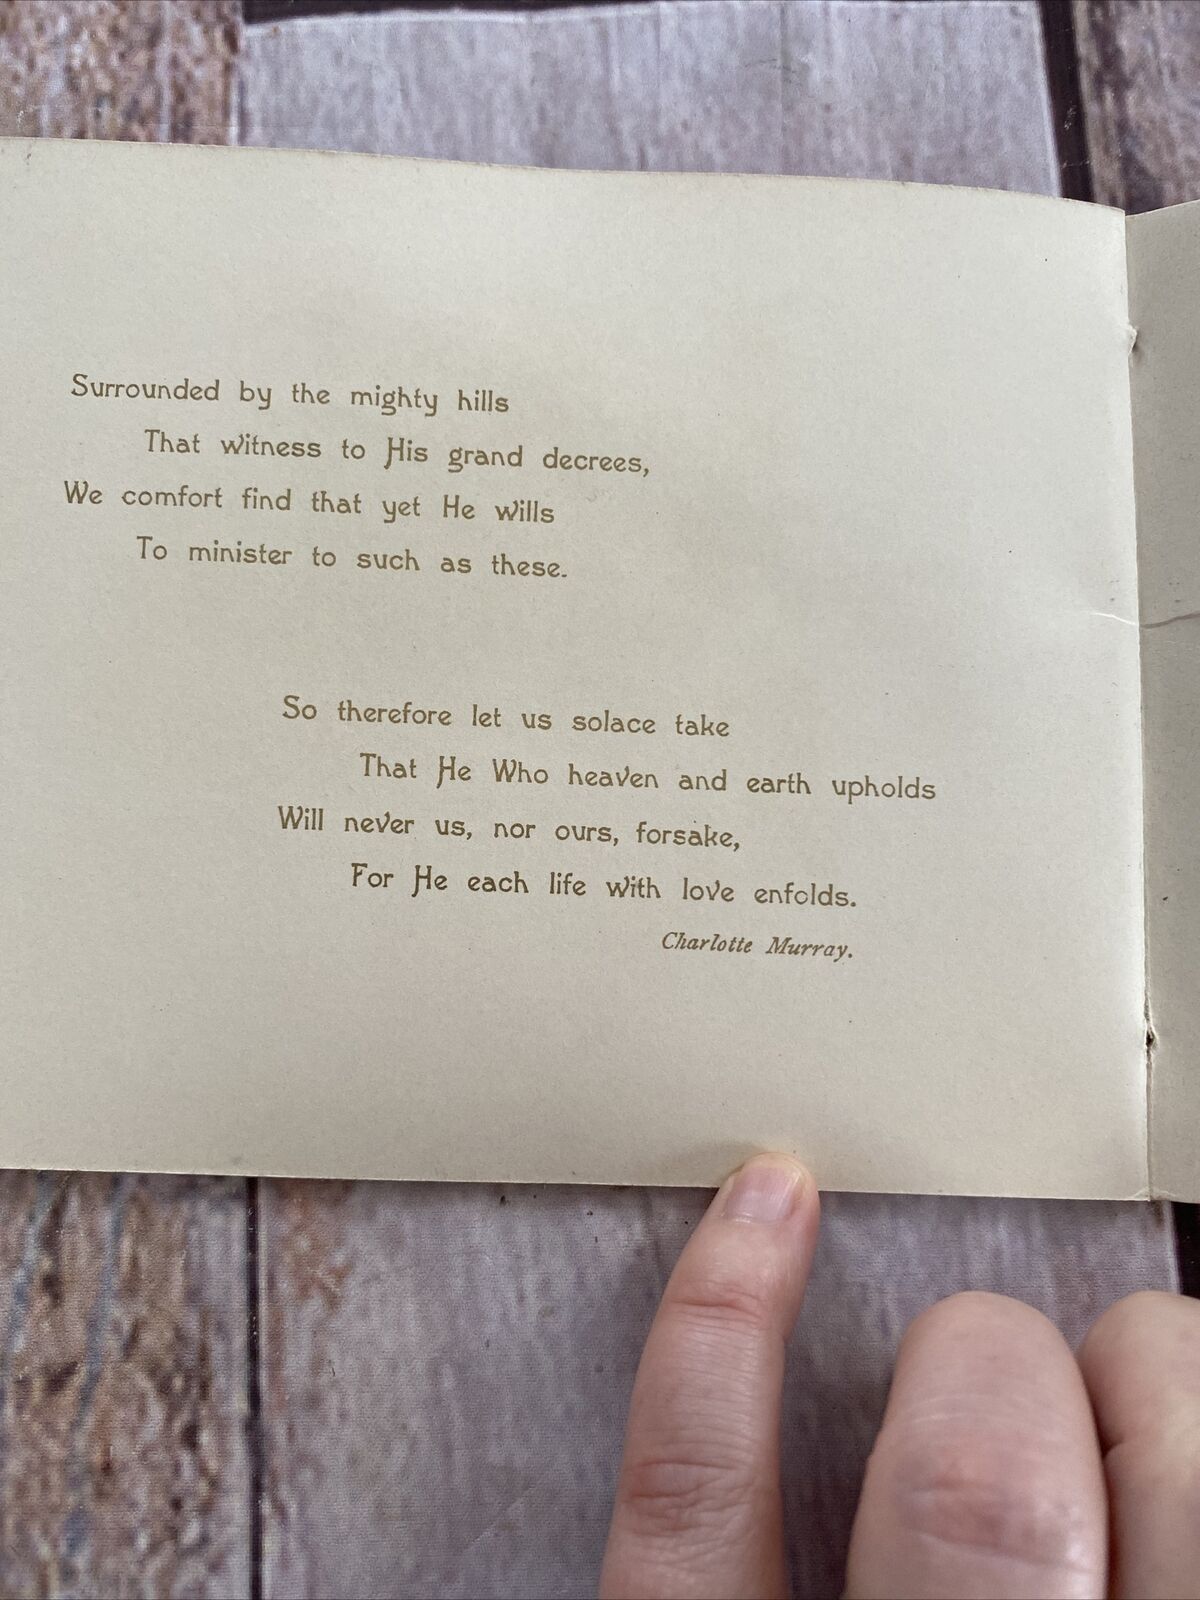 Surrounded by the mighty hills
That witness to His grand decrees,
We comfort find that yet He wills
To minister to such as these.
So therefore let us solace take
That He Who heaven and earth upholds
Will never us, nor ours, forsake,
For He each life with love enfolds.
Charlotte Murray.